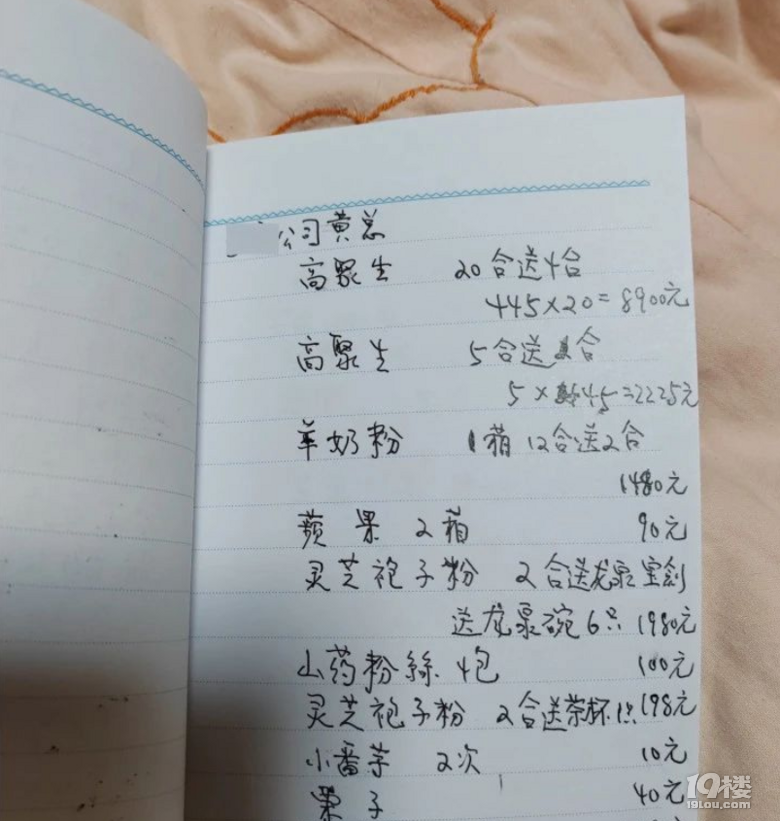 公司黄总
高聚生 20合送4合
445×20=8900元
高聚生 5合送1合
5×445=2225元
羊奶粉 1箱 12合送2合
1480元
蘋果 2箱 90元
灵芝袍子粉 2合送龙泉宝剑
送龙泉碗6只 1980元
山药粉絲 4包 100元
灵芝袍子粉 2合送茶杯1只 198元
小番芋 2次 10元
栗子 40元
19楼
19lou.com